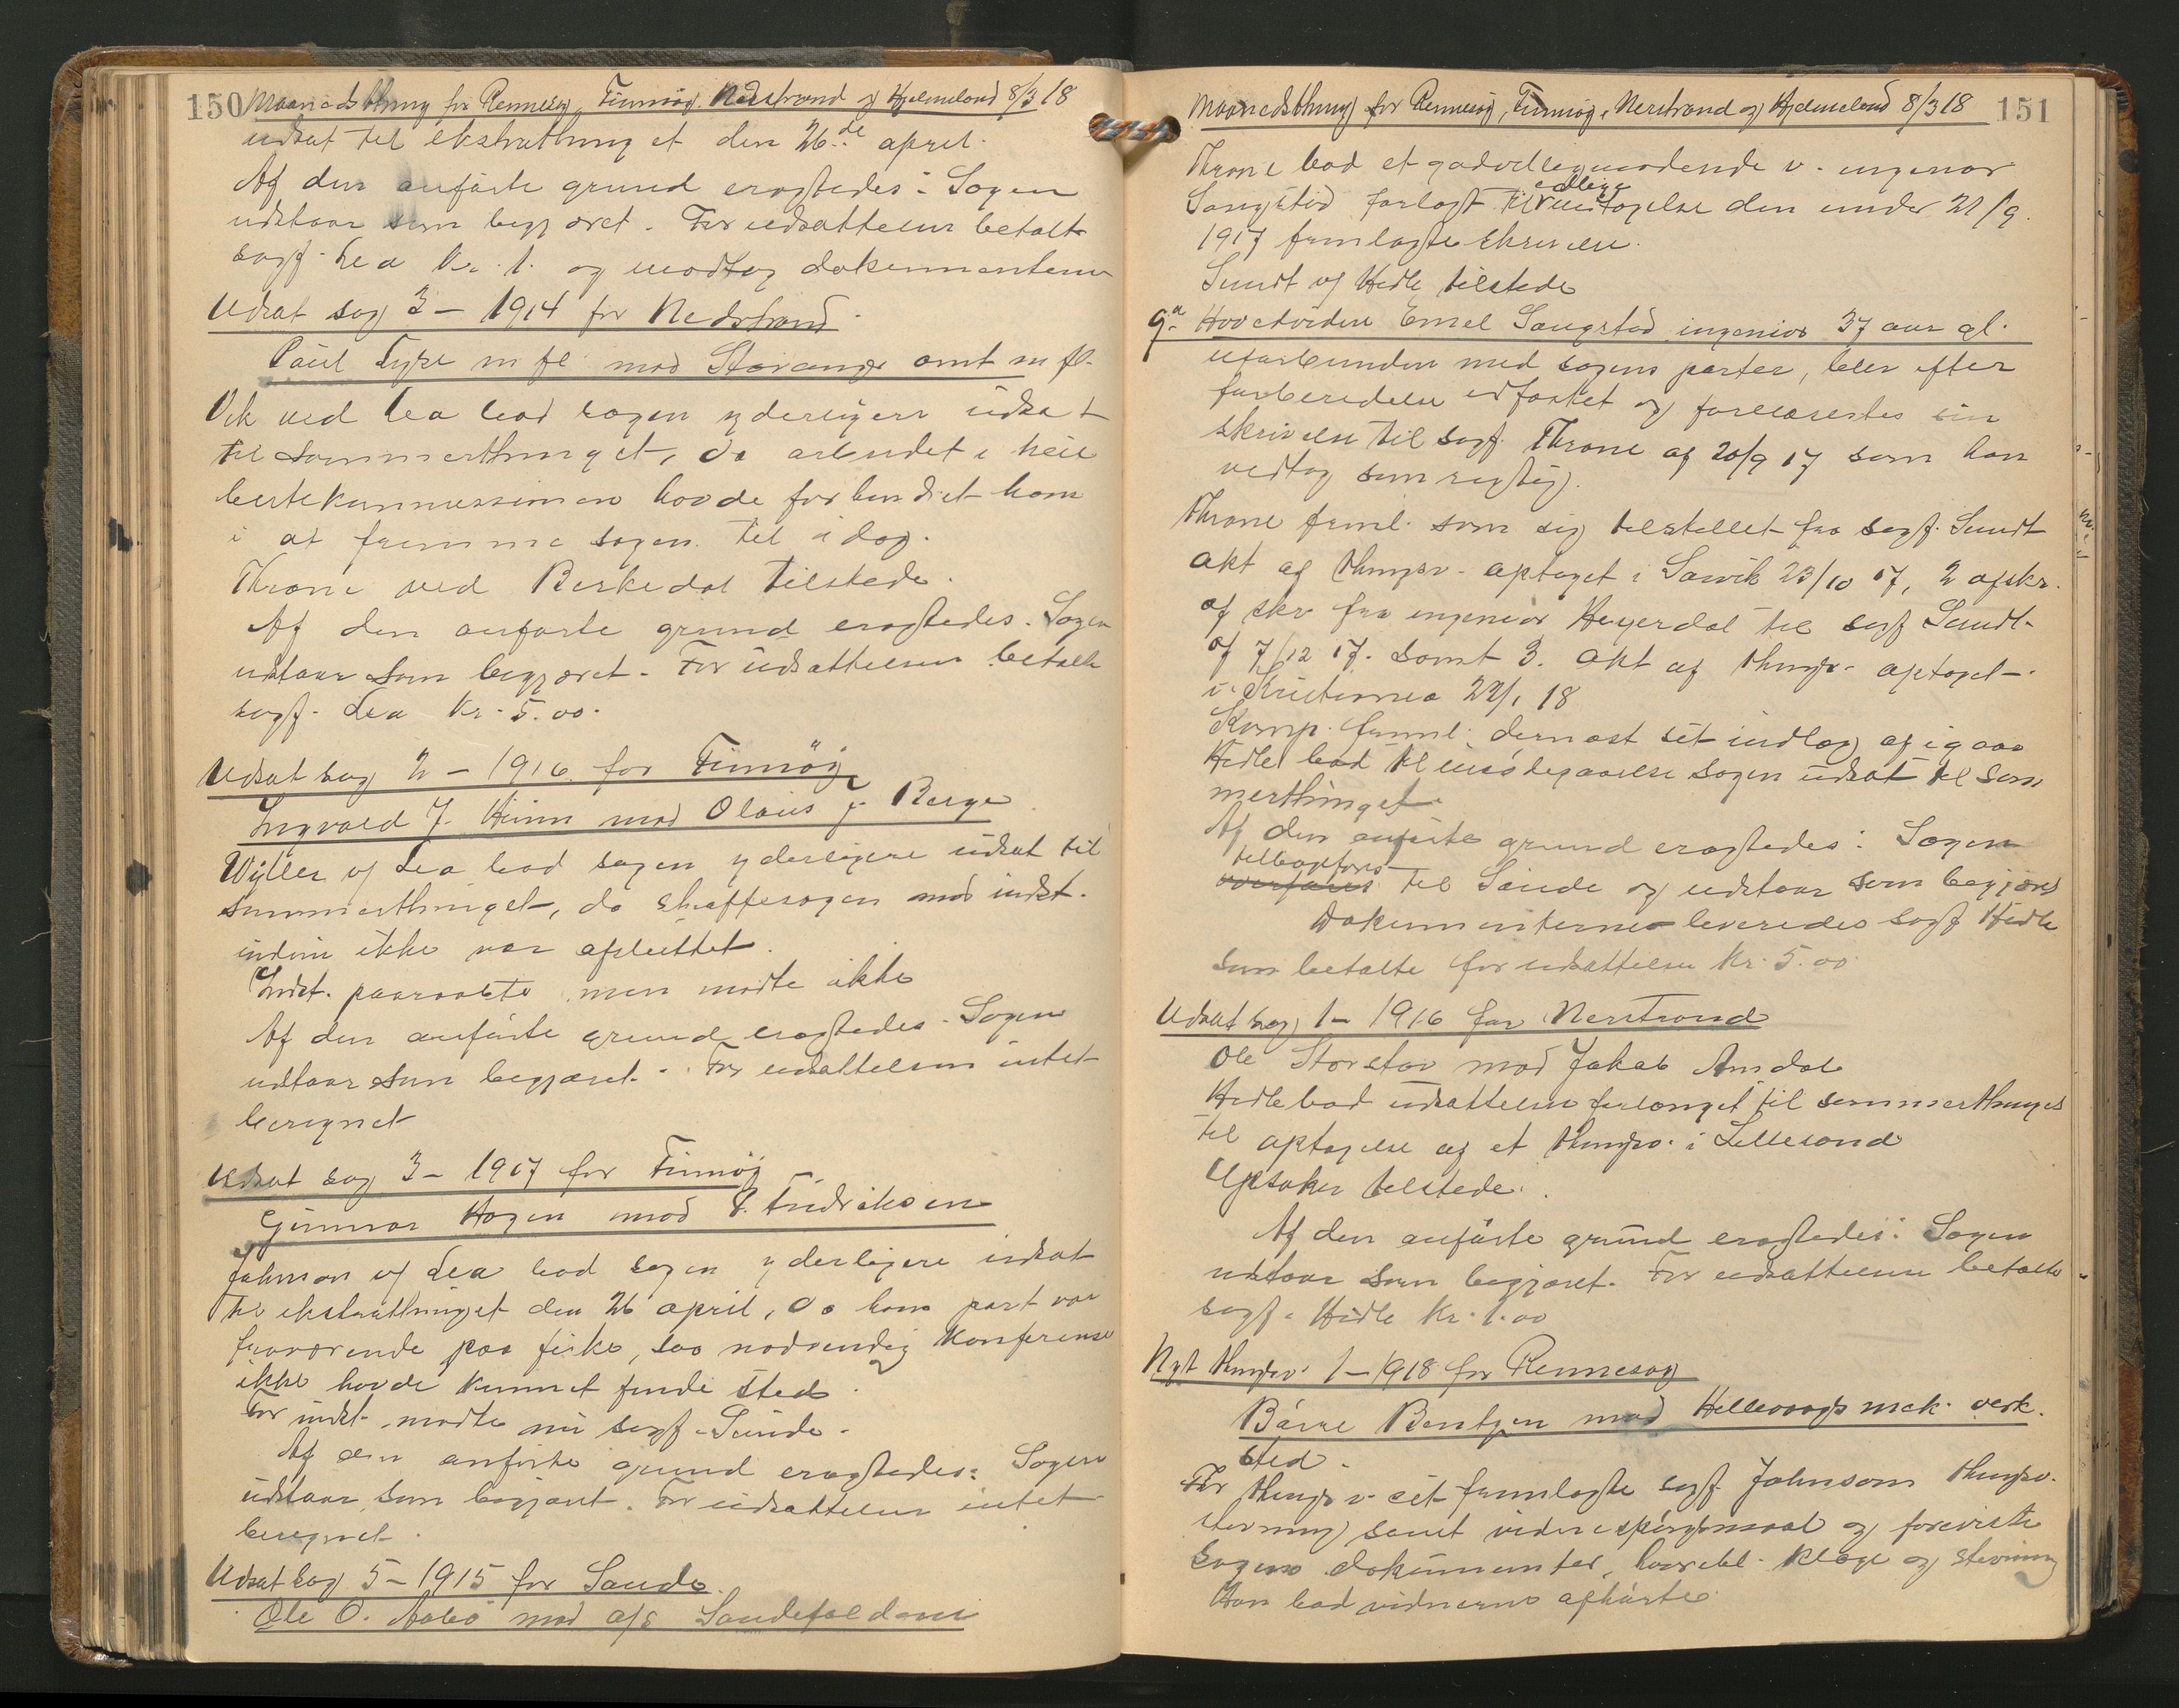 150 Maanedsthing for Rennesøy, Finnøy, Nedstrand og Hjelmeland 8/3 18
udsat til ekstrathinget den 26de april.
Af den anførte grund eragtedes: Sagen
udstaar som begjæret. For udsættelsen betalte
sagf. Lea Kr. 1. og modtog dokumenterne
Udsat sag 3 – 1914 for Nedstrand.
Paul Lyse m fl mod Stavanger amt m fl.
Vik ved Lea bad sagen yderligere udsat
til sommerthinget, da arbeidet i
havde forhindret ham
i at fremme sagen til idag.
Throne ved Berkedal tilstede.
Af den anførte grund eragtedes. Sagen
udstaar som begjæret. For udsættelsen betalte
sagf. Lea Kr. 5.00.
Udsat sag 2 – 1916 for Finnøy
Ingvald J. mod Olaus J. Berge
Wyller v/ Lea bad sagen yderligere udsat til
sommerthinget, da straffesagen mod indst.
endnu ikke var afsluttet.
Indst. paaraabte men mødte ikke
Af den anførte grund eragtedes. Sagen
udstaar som begjæret. For udsættelsen intet
beregnet
Udsat sag 3 – 1917 for Finnøy
Gunnar Hagen mod P. Fredriksen
Johnson v/ Lea bad sagen yderligere udsat
til ekstrathinget den 26 april, da hans part var
fraværende paa fiske, saa nødvendig konferense
ikke havde kunnet finde sted.
For indst. mødte nu sagf. Sunde.
Af den anførte grund eragtedes: Sagen
udstaar som begjæret. For udsættelsen intet
beregnet.
Udsat sag 5 – 1915 for Sande.
Ole O. Aabø mod a/s Saudefaldene
Maanedsthing for Rennesøy, Finnøy, Nerstrand og Hjelmeland 8/3 18 151
Throne bad et godvilligmødende v. ingeniør
Saugstad forlagt til edelige vedtagelse den under 21/9
1917 fremlagte skrivelse.
Sundt v/ Hidle tilstede
9de Hovedvidne Emel Saugstad ingeniør 37 aar gl.
uforbunden med sagens parter, blev efter
forberedelse edfæstet og forelæstes sin
skrivelse til sagf. Throne af 20/9 17 som han
vedtog som rigtig.
Throne freml. som sig tilstillet fra sagf. Sundt
akt af thingsv. optaget i Larvik 23/10 17, 2 afskr.
af skr. fra ingeniør Heyerdal til sagf Sundt
af 7/12 17. samt 3. akt af thingsv. optaget
i Kristiania 22/1 18
Komp. freml. dernæst sit indlæg af igaar
Hidle bad til imødegaaelse sagen udsat til som
merthinget.
Af den anførte grund eragtedes: Sagen
tilbageføres
overføres til Saude og udstaar som begjæret
Dokumenterne leveredes sagf Hidle
som betalte for udsættelsen Kr. 5.00
Udsat sag 1 – 1916 for Nerstrand
Ole Storstav mod Jakob Amdal
Hidle bad udsættelse forlænget til sommerthinget
til optagelse af et thingsv. i Lillesand
Opsaker tilstede.
Af den anførte grund eragtedes: Sagen
udstaar som begjæret. For udsættelsen betalte
sagf. Hidle Kr. 1.00
Nyt thingsv. 1 – 1918 for Rennesøy
Børre Bentzen mod Hillevaags mek. verk.
sted.
For thingsv. sit fremlagte sagf. Johnson thingsv.
stevning samt vidnespørgsmaal og foreviste
sagens dokumenter, herunder klage og stevning
Han bad vidnerne afhørte